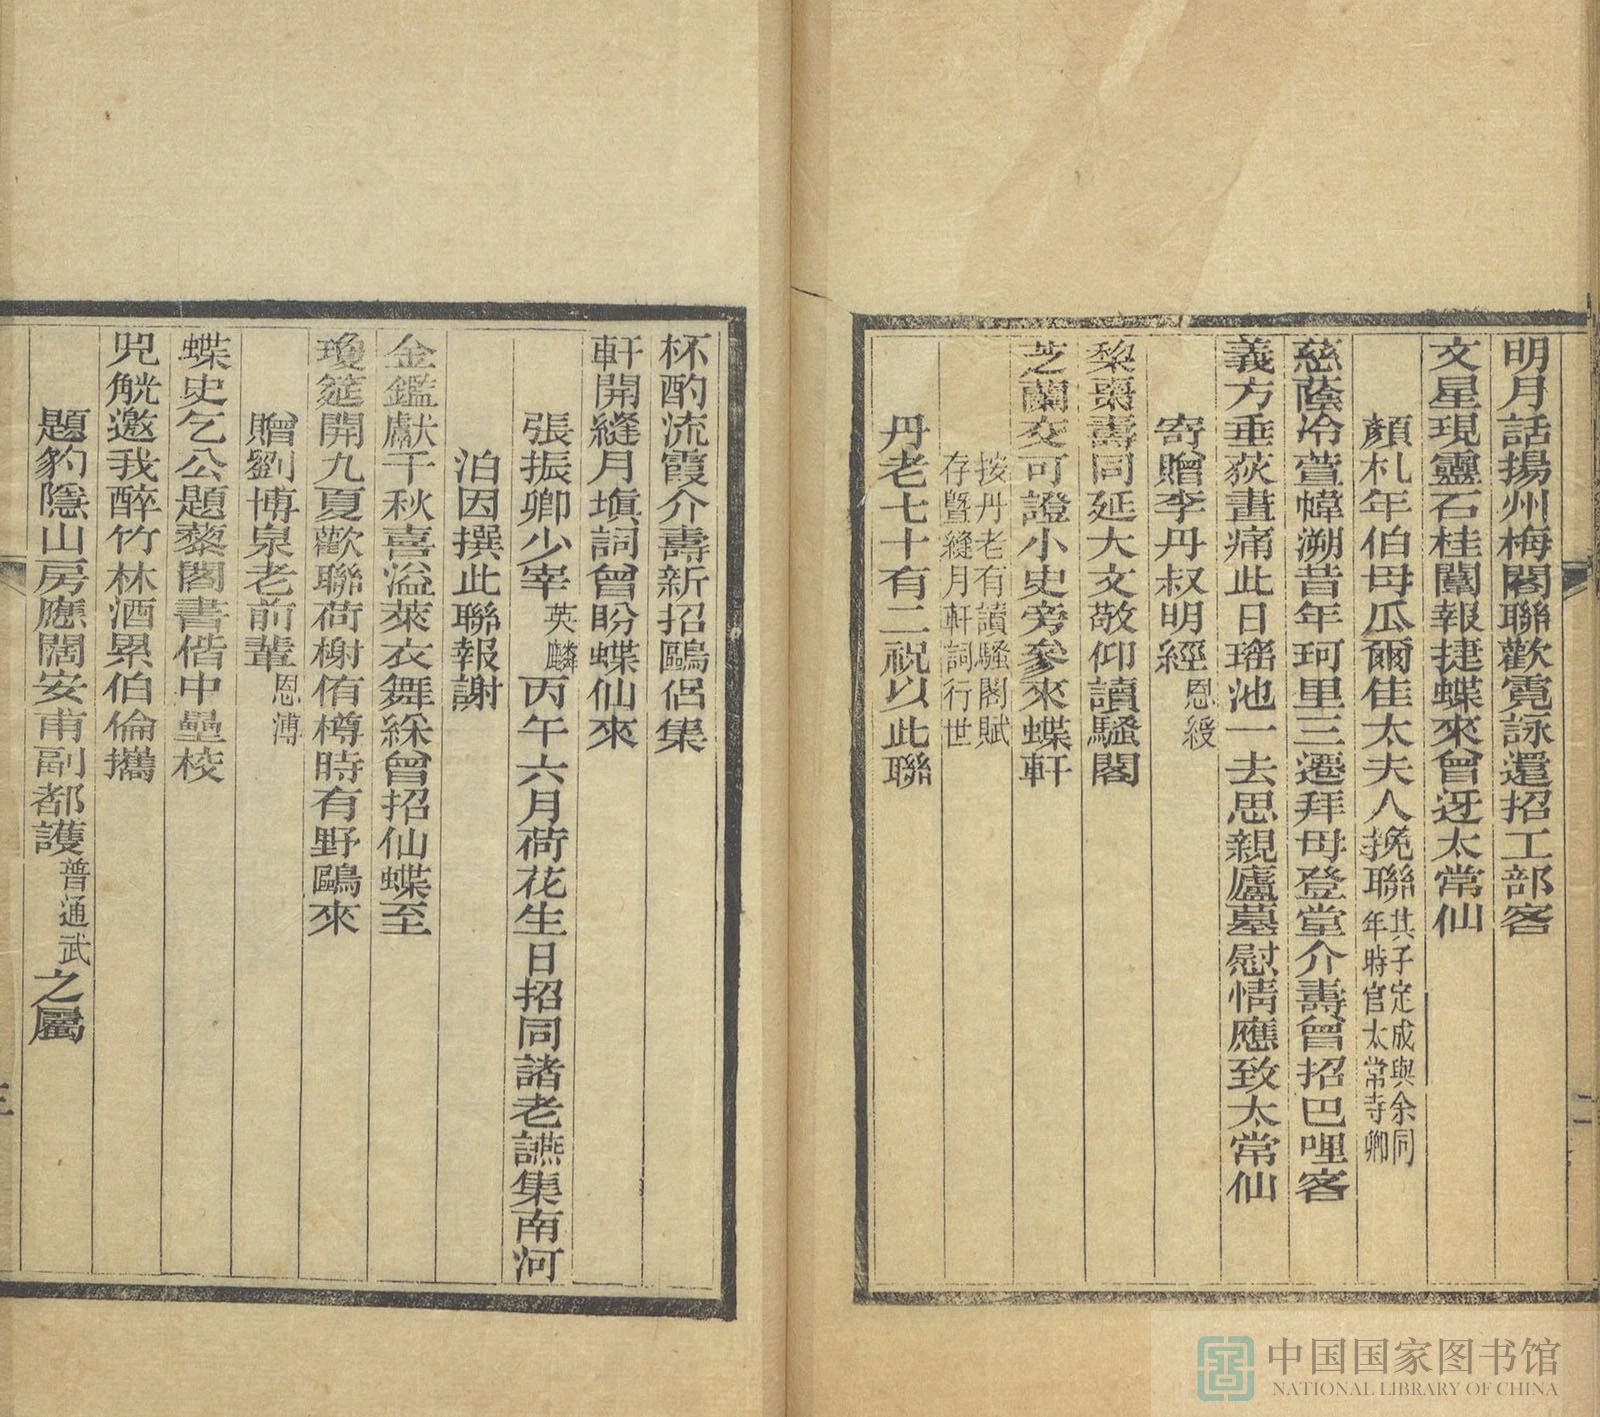 明月話揚州梅閣聯歡霓詠還招工部客
文星現靈石桂闈報捷蝶來曾迓太常仙
顏札年伯母瓜爾佳太夫人挽聯其子定成與余同年時官太常寺卿
慈蔭冷萱幃溯昔年珂里三遷拜母登堂介壽曾招巴哩客
義方垂荻畫痛此日瑤池一去思親廬墓慰情應致太常仙
寄贈李丹叔明經恩綬
梨棗壽同延大文敬仰讀騷閣
芝蘭交可證小史旁參來蝶軒
按丹老有讀騷閣賦存曁縫月軒詞行世
丹老七十有二祝以此聯
二
杯酌流霞介壽新招鷗侶集
軒開縫月塡詞曾盼蝶仙來
張振卿少宰英麟丙午六月荷花生日招同諸老讌集南河
泊因撰此聯報謝
金鑑獻千秋喜溢萊衣舞綵曾招仙蝶至
瓊筵開九夏歡聯荷榭侑樽時有野鷗來
贈劉博泉老前輩恩溥
蝶史乞公題藜閣書偕中壘校
兕觥邀我醉竹林酒累伯倫攜
題豹隱山房應闊安甫副都護普通武之屬
三
中国国家图书馆
NATIONAL LIBRARY OF CHINA